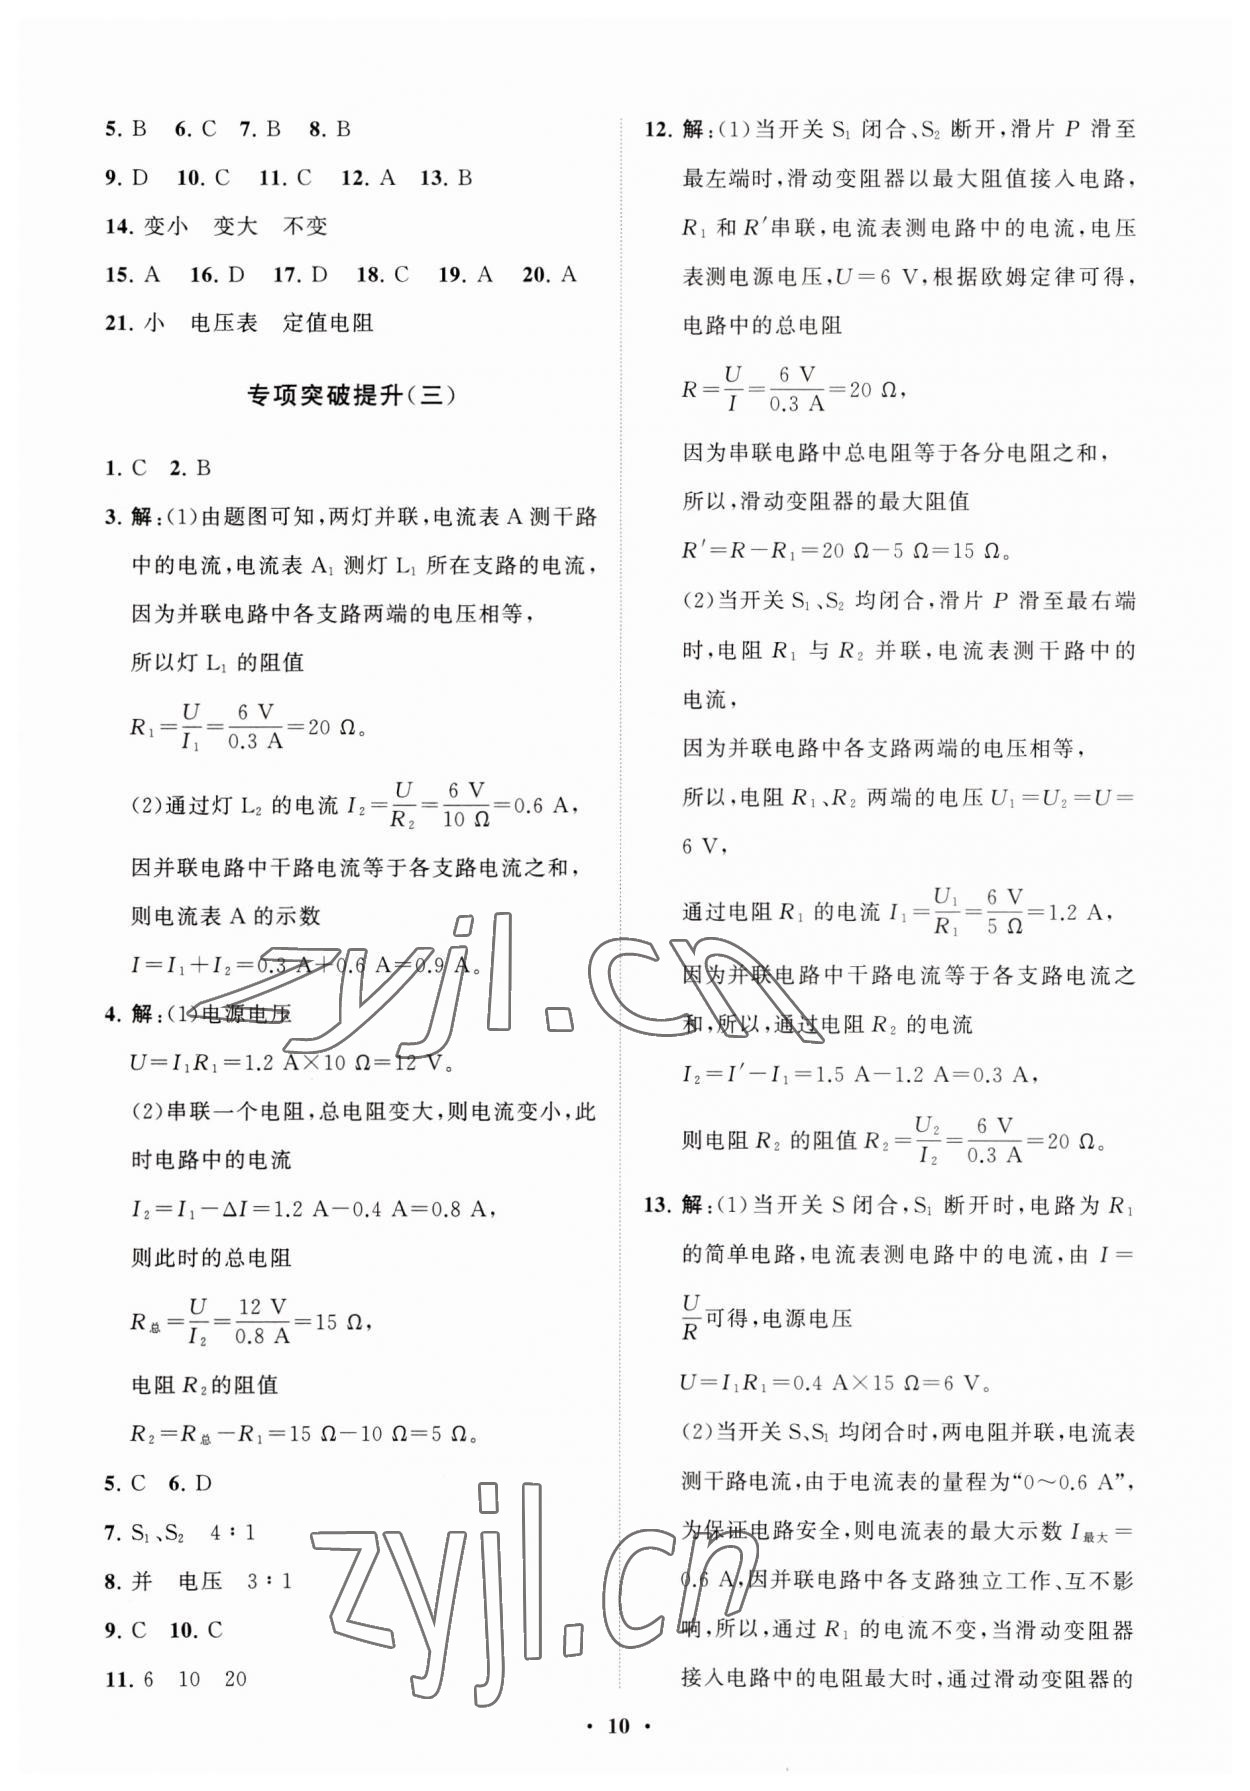 5. B 6. C 7. B 8. B
9. D 10. C 11. C 12. A 13. B
14. 变小 变大 不变
15. A 16. D 17. D 18. C 19. A 20. A
21. 小 电压表 定值电阻
专项突破提升(三)
1. C 2. B
3. 解:(1)由题图可知,两灯并联,电流表 A 测干路
中的电流,电流表 A₁ 测灯 L₁ 所在支路的电流,
因为并联电路中各支路两端的电压相等,
所以灯 L₁ 的阻值
R₁=U/I₁=6 V/0.3 A=20 Ω。
(2)通过灯 L₂ 的电流 I₂=U/R₂=6 V/10 Ω=0.6 A,
因并联电路中干路电流等于各支路电流之和,
则电流表 A 的示数
I=I₁+I₂=0.3 A+0.6 A=0.9 A。
4. 解:(1)电源电压
U=I₁R₁=1.2 A×10 Ω=12 V。
(2)串联一个电阻,总电阻变大,则电流变小,此
时电路中的电流
I₂=I₁-ΔI=1.2 A-0.4 A=0.8 A,
则此时的总电阻
R总=U/I₂=12 V/0.8 A=15 Ω,
电阻 R₂的阻值
R₂=R总-R₁=15 Ω-10 Ω=5 Ω。
5. C 6. D
7. S₁、S₂ 4∶1
8. 并 电压 3∶1
9. C 10. C
11. 6 10 20
12. 解:(1)当开关 S₁ 闭合、S₂ 断开,滑片 P 滑至
最左端时,滑动变阻器以最大阻值接入电路,
R₁ 和 R′串联,电流表测电路中的电流,电压
表测电源电压,U=6 V,根据欧姆定律可得,
电路中的总电阻
R=U/I=6 V/0.3 A=20 Ω,
因为串联电路中总电阻等于各分电阻之和,
所以,滑动变阻器的最大阻值
R′=R-R₁=20 Ω-5 Ω=15 Ω。
(2)当开关 S₁、S₂ 均闭合,滑片 P 滑至最右端
时,电阻 R₁ 与 R₂ 并联,电流表测干路中的
电流,
因为并联电路中各支路两端的电压相等,
所以,电阻 R₁、R₂ 两端的电压 U₁=U₂=U=
6 V,
通过电阻 R₁ 的电流 I₁=U₁/R₁=6 V/5 Ω=1.2 A,
因为并联电路中干路电流等于各支路电流之
和,所以,通过电阻 R₂ 的电流
I₂=I′-I₁=1.5 A-1.2 A=0.3 A,
则电阻 R₂ 的阻值 R₂=U₂/I₂=6 V/0.3 A=20 Ω。
13. 解:(1)当开关 S闭合,S₁ 断开时,电路为 R₁
的简单电路,电流表测电路中的电流,由 I=
U/R可得,电源电压
U=I₁R₁=0.4 A×15 Ω=6 V。
(2)当开关 S、S₁ 均闭合时,两电阻并联,电流表
测干路电流,由于电流表的量程为“0~0.6 A”,
为保证电路安全,则电流表的最大示数 I最大=
0.6 A,因并联电路中各支路独立工作、互不影
响,所以,通过 R₁ 的电流不变,当滑动变阻器
接入电路中的电阻最大时,通过滑动变阻器的
· 10 ·
zyjl.cn
zyjl.cn